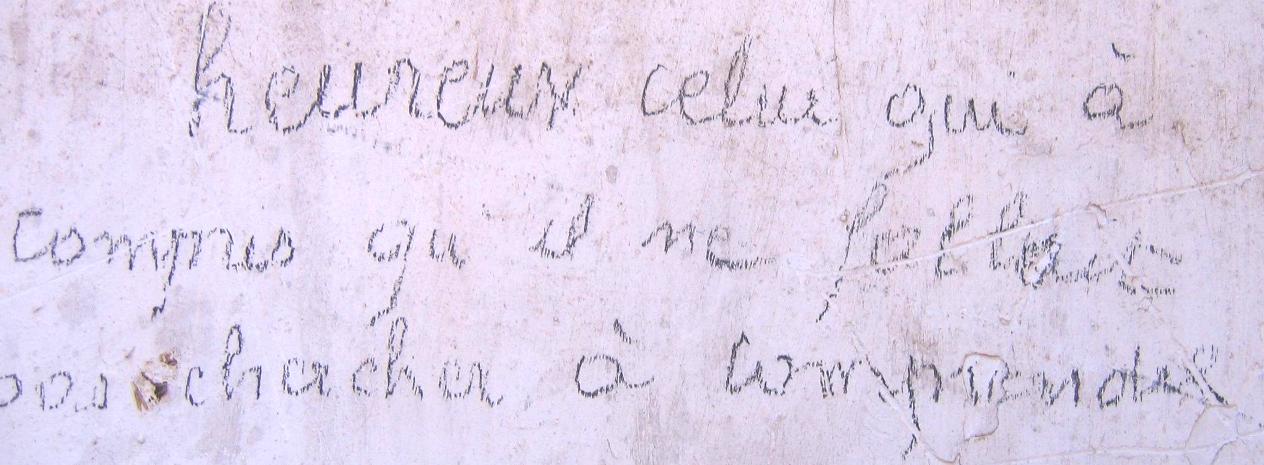 heureux celui qui à
compris qu'il ne fallait
pas chercher à comprendre